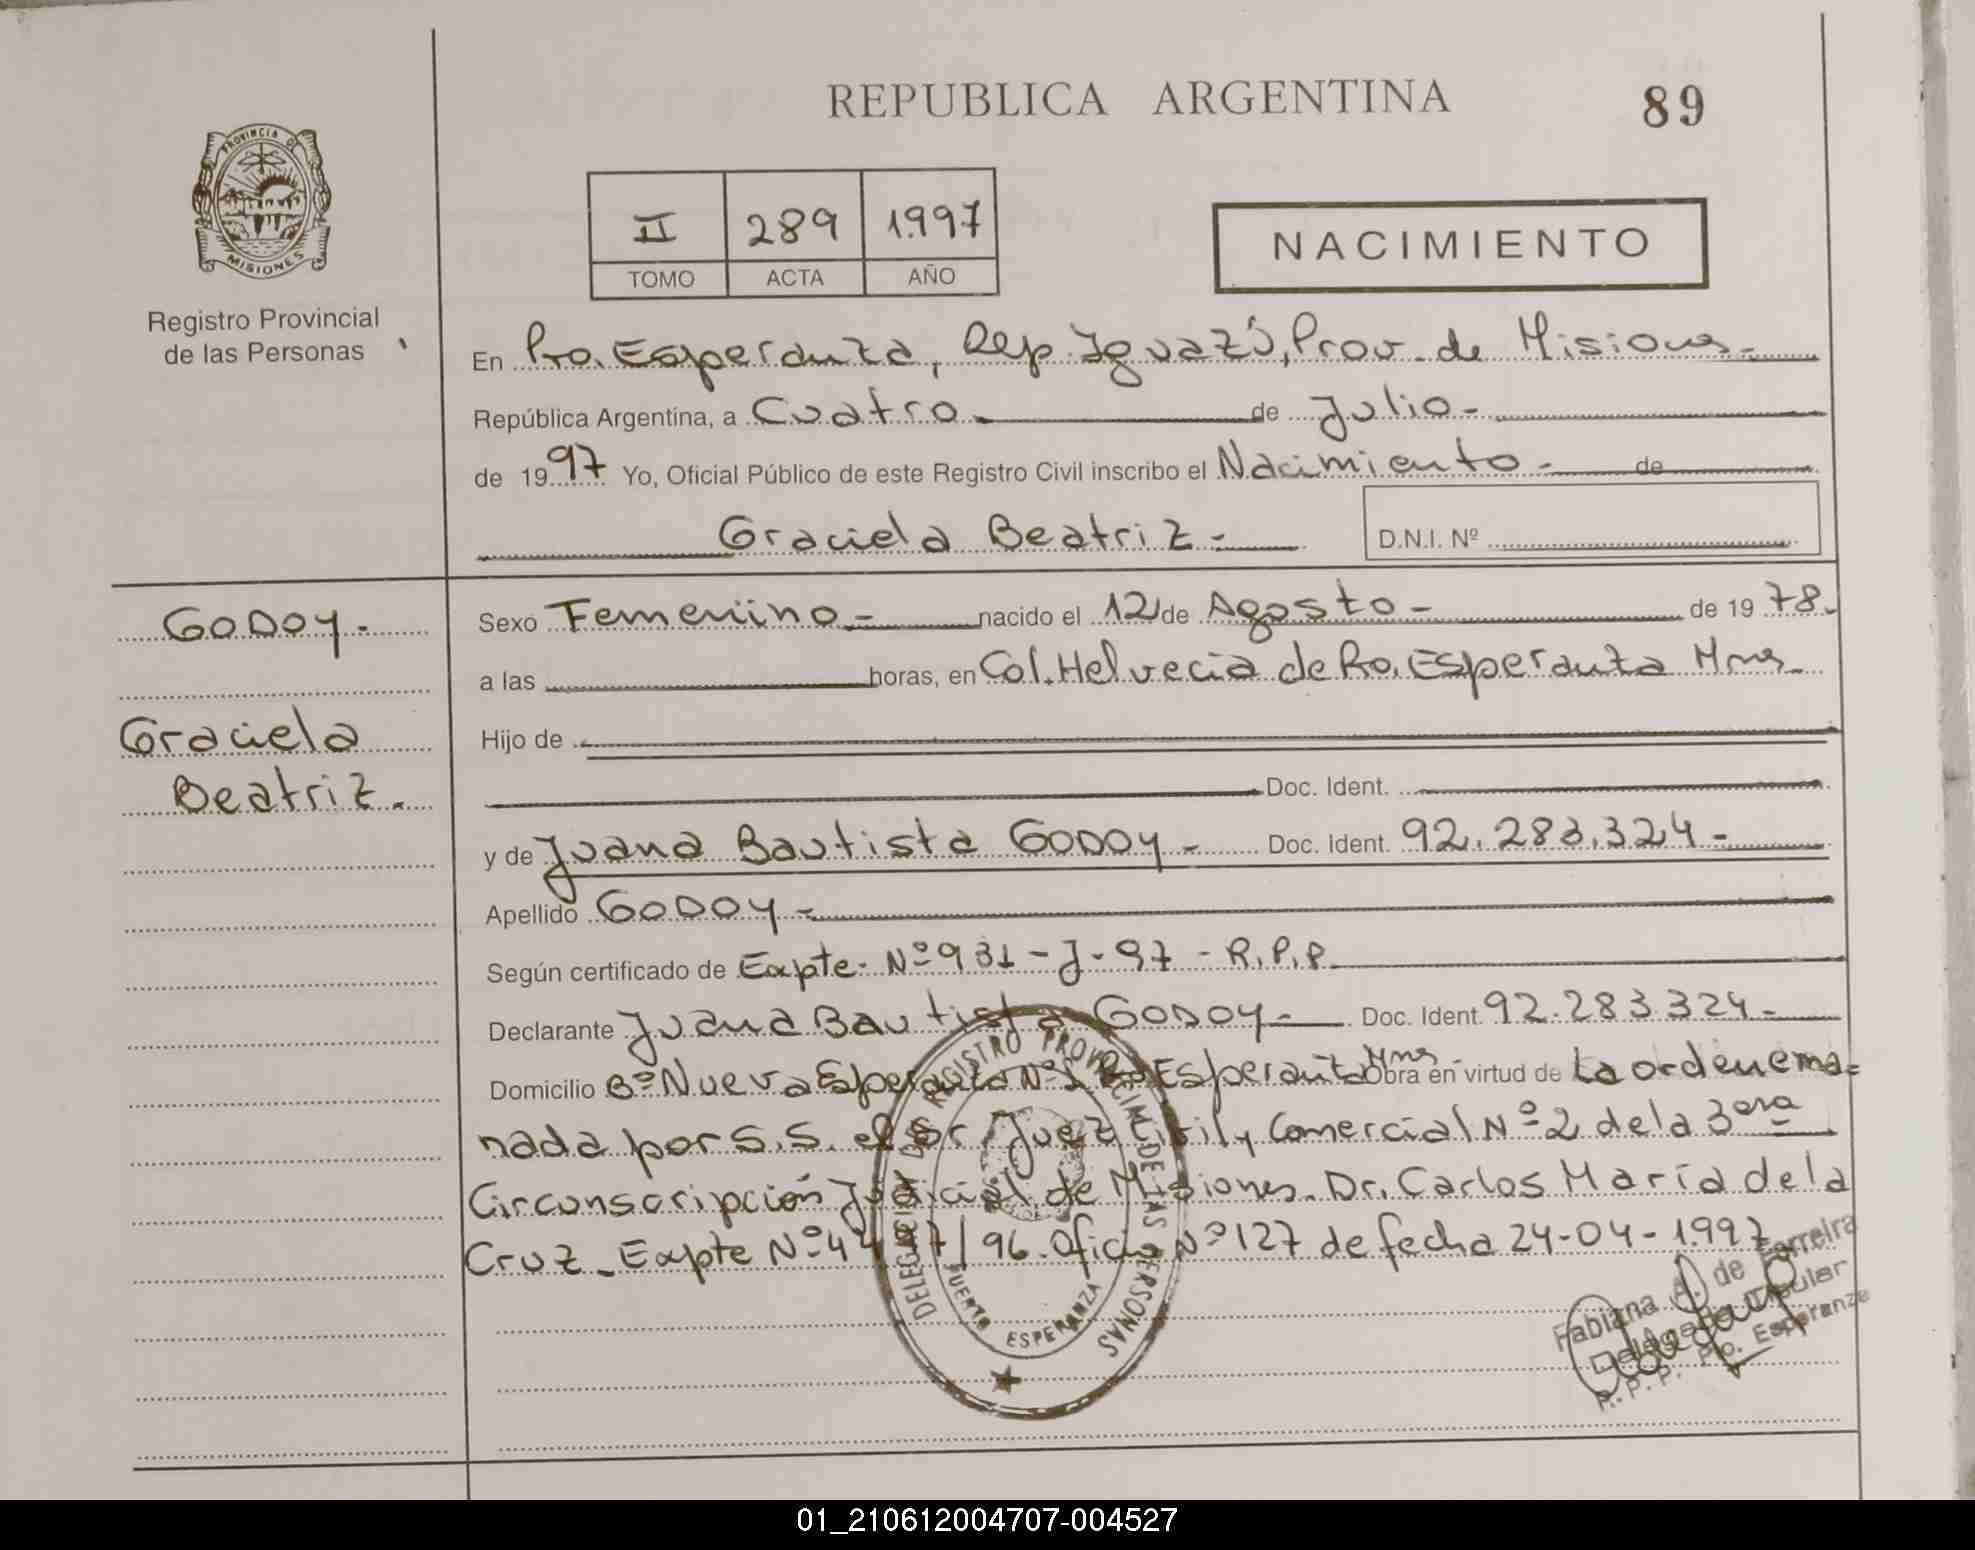 REPUBLICA ARGENTINA
89
PROVINCIA DE
MISIONES
Registro Provincial
de las Personas
II 289 1.997
TOMO ACTA AÑO
NACIMIENTO
En Pto. Esperanza, Dep. Iguazú, Prov. de Misiones.-
República Argentina, a Cuatro.- de Julio.-
de 1997 Yo, Oficial Público de este Registro Civil inscribo el Nacimiento.- de
Graciela Beatriz.-
D.N.I. Nº
GODOY.-
Graciela
Beatriz.
Sexo Femenino.- nacido el 12 de Agosto.- de 19 78.
a las horas, en Col. Helvecia de Pto. Esperanza Mnes.
Hijo de
Doc. Ident.
y de Juana Bautista GODOY.- Doc. Ident. 92.283.324.-
Apellido GODOY.-
Según certificado de Expte. Nº 931-J-97 - R.P.P.
Declarante Juana Bautista GODOY.- Doc. Ident. 92.283.324.-
Domicilio Bº Nueva Esperanza Nº Pto. Esperanza Mnes Obra en virtud de La orden ema=
nada por S.S. el Sr. Juez Civil y Comercial Nº 2 de la 3era
Circunscripción Judicial de Misiones. Dr. Carlos María de la
Cruz. Expte Nº /96. Oficio Nº 127 de fecha 24-04-1.997
DELEGACION DEL REGISTRO PROVINCIAL DE LAS PERSONAS
PUERTO ESPERANZA
Fabiana A. de Ferreira
Delegada Titular
R.P.P. Pto. Esperanza
01_210612004707-004527